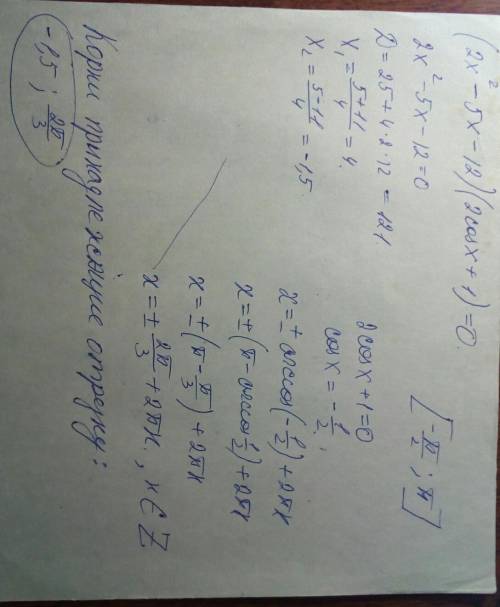 (2x² - 5x - 12)(2cosx + 1) = 0. [-π/2 ; π]
2x² - 5x - 12 = 0
D = 25 + 4·2·12 = 121
x₁ = (5+11)/4 = 4.
x₂ = (5-11)/4 = -1,5.
2cosx + 1 = 0
cosx = -1/2,
x = ± arccos(-1/2) + 2πk
x = ± (π - arccos 1/2) + 2πk
x = ± (π - π/3) + 2πk
x = ± 2π/3 + 2πk, k ∈ Z
Корни принадлежащие отрезку:
-1,5 ; 2π/3